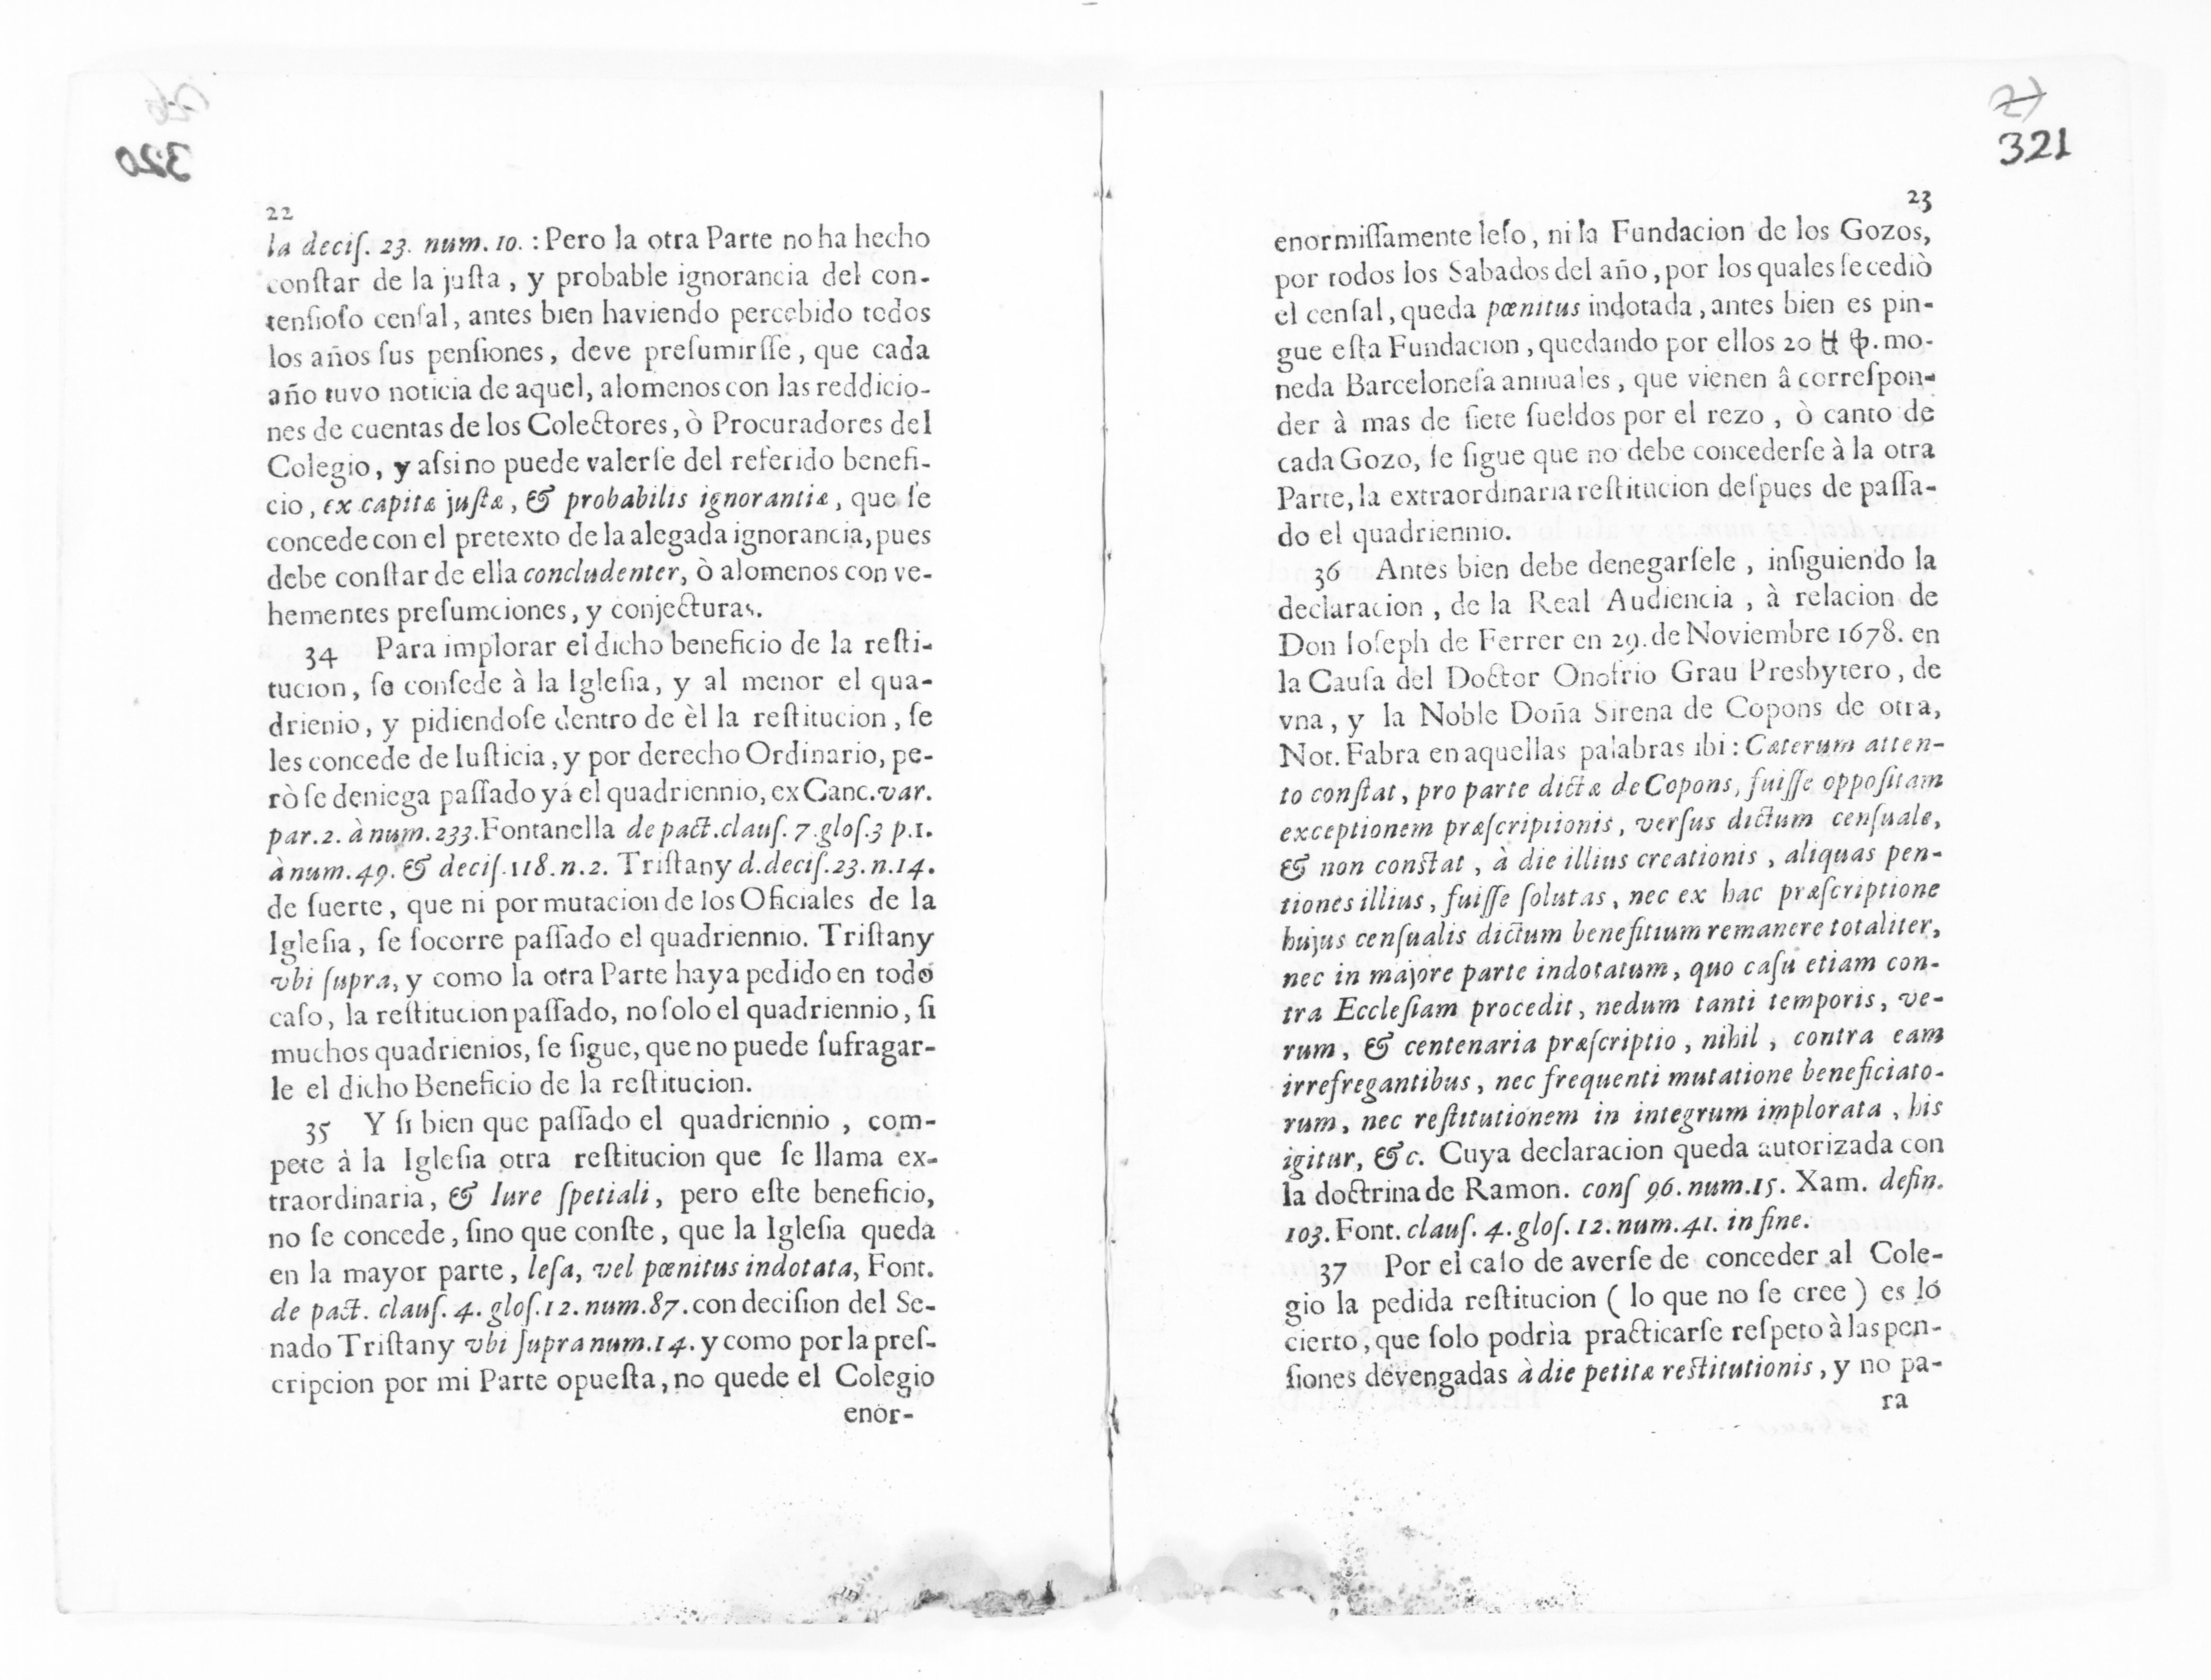 320
22
la decis. 23. num. 10. : Pero la otra Parte no ha hecho
constar de la justa, y probable ignorancia del con-
tensioso censal, antes bien haviendo percebido todos
los años sus pensiones, deve presumirsse, que cada
año tuvo noticia de aquel, alomenos con las reddicio-
nes de cuentas de los Colectores, ò Procuradores del
Colegio, y assi no puede valerse del referido benefi-
cio, ex capitæ justæ, & probabilis ignorantiæ, que se
concede con el pretexto de la alegada ignorancia, pues
debe constar de ella concludenter, ò alomenos con ve-
hementes presumciones, y conjecturas.
34 Para implorar el dicho beneficio de la resti-
tucion, se consede à la Iglesia, y al menor el qua-
drienio, y pidiendose dentro de èl la restitucion, se
les concede de Iusticia, y por derecho Ordinario, pe-
rò se deniega passado yá el quadriennio, ex Canc. var.
par. 2. à num. 233. Fontanella de pact. claus. 7. glos. 3 p. 1.
à num. 49. & decis. 118. n. 2. Tristany d. decis. 23. n. 14.
de suerte, que ni por mutacion de los Oficiales de la
Iglesia, se socorre passado el quadriennio. Tristany
vbi supra, y como la otra Parte haya pedido en todo
caso, la restitucion passado, no solo el quadriennio, si
muchos quadrienios, se sigue, que no puede sufragar-
le el dicho Beneficio de la restitucion.
35 Y si bien que passado el quadriennio, com-
pete à la Iglesia otra restitucion que se llama ex-
traordinaria, & Iure spetiali, pero este beneficio,
no se concede, sino que conste, que la Iglesia queda
en la mayor parte, lesa, vel pœnitus indotata, Font.
de pact. claus. 4. glos. 12. num. 87. con decision del Se-
nado Tristany vbi supra num. 14. y como por la pres-
cripcion por mi Parte opuesta, no quede el Colegio
enor-
321
23
enormissamente leso, ni la Fundacion de los Gozos,
por todos los Sabados del año, por los quales se cediò
el censal, queda pœnitus indotada, antes bien es pin-
gue esta Fundacion, quedando por ellos 20 mo-
neda Barcelonesa annuales, que vienen â correspon-
der à mas de siete sueldos por el rezo, ò canto de
cada Gozo, se sigue que no debe concederse à la otra
Parte, la extraordinaria restitucion despues de passa-
do el quadriennio.
36 Antes bien debe denegarsele, insiguiendo la
declaracion, de la Real Audiencia, à relacion de
Don Ioseph de Ferrer en 29. de Noviembre 1678. en
la Causa del Doctor Onofrio Grau Presbytero, de
vna, y la Noble Doña Sirena de Copons de otra,
Not. Fabra en aquellas palabras ibi: Cæterum atten-
to constat, pro parte dictæ de Copons, fuisse oppositam
exceptionem præscriptionis, versus dictum censuale,
& non constat, à die illius creationis, aliquas pen-
tiones illius, fuisse solutas, nec ex hac præscriptione
hujus censualis dictum benefitium remanere totaliter,
nec in majore parte indotatum, quo casu etiam con-
tra Ecclesiam procedit, nedum tanti temporis, ve-
rum, & centenaria præscriptio, nihil, contra eam
irrefregantibus, nec frequenti mutatione beneficiato-
rum, nec restitutionem in integrum implorata, his
igitur, &c. Cuya declaracion queda autorizada con
la doctrina de Ramon. cons 96. num. 15. Xam. defin.
103. Font. claus. 4. glos. 12. num. 41. in fine.
37 Por el caso de averse de conceder al Cole-
gio la pedida restitucion ( lo que no se cree ) es ló
cierto, que solo podrìa practicarse respeto à las pen-
siones devengadas à die petitæ restitutionis, y no pa-
ra